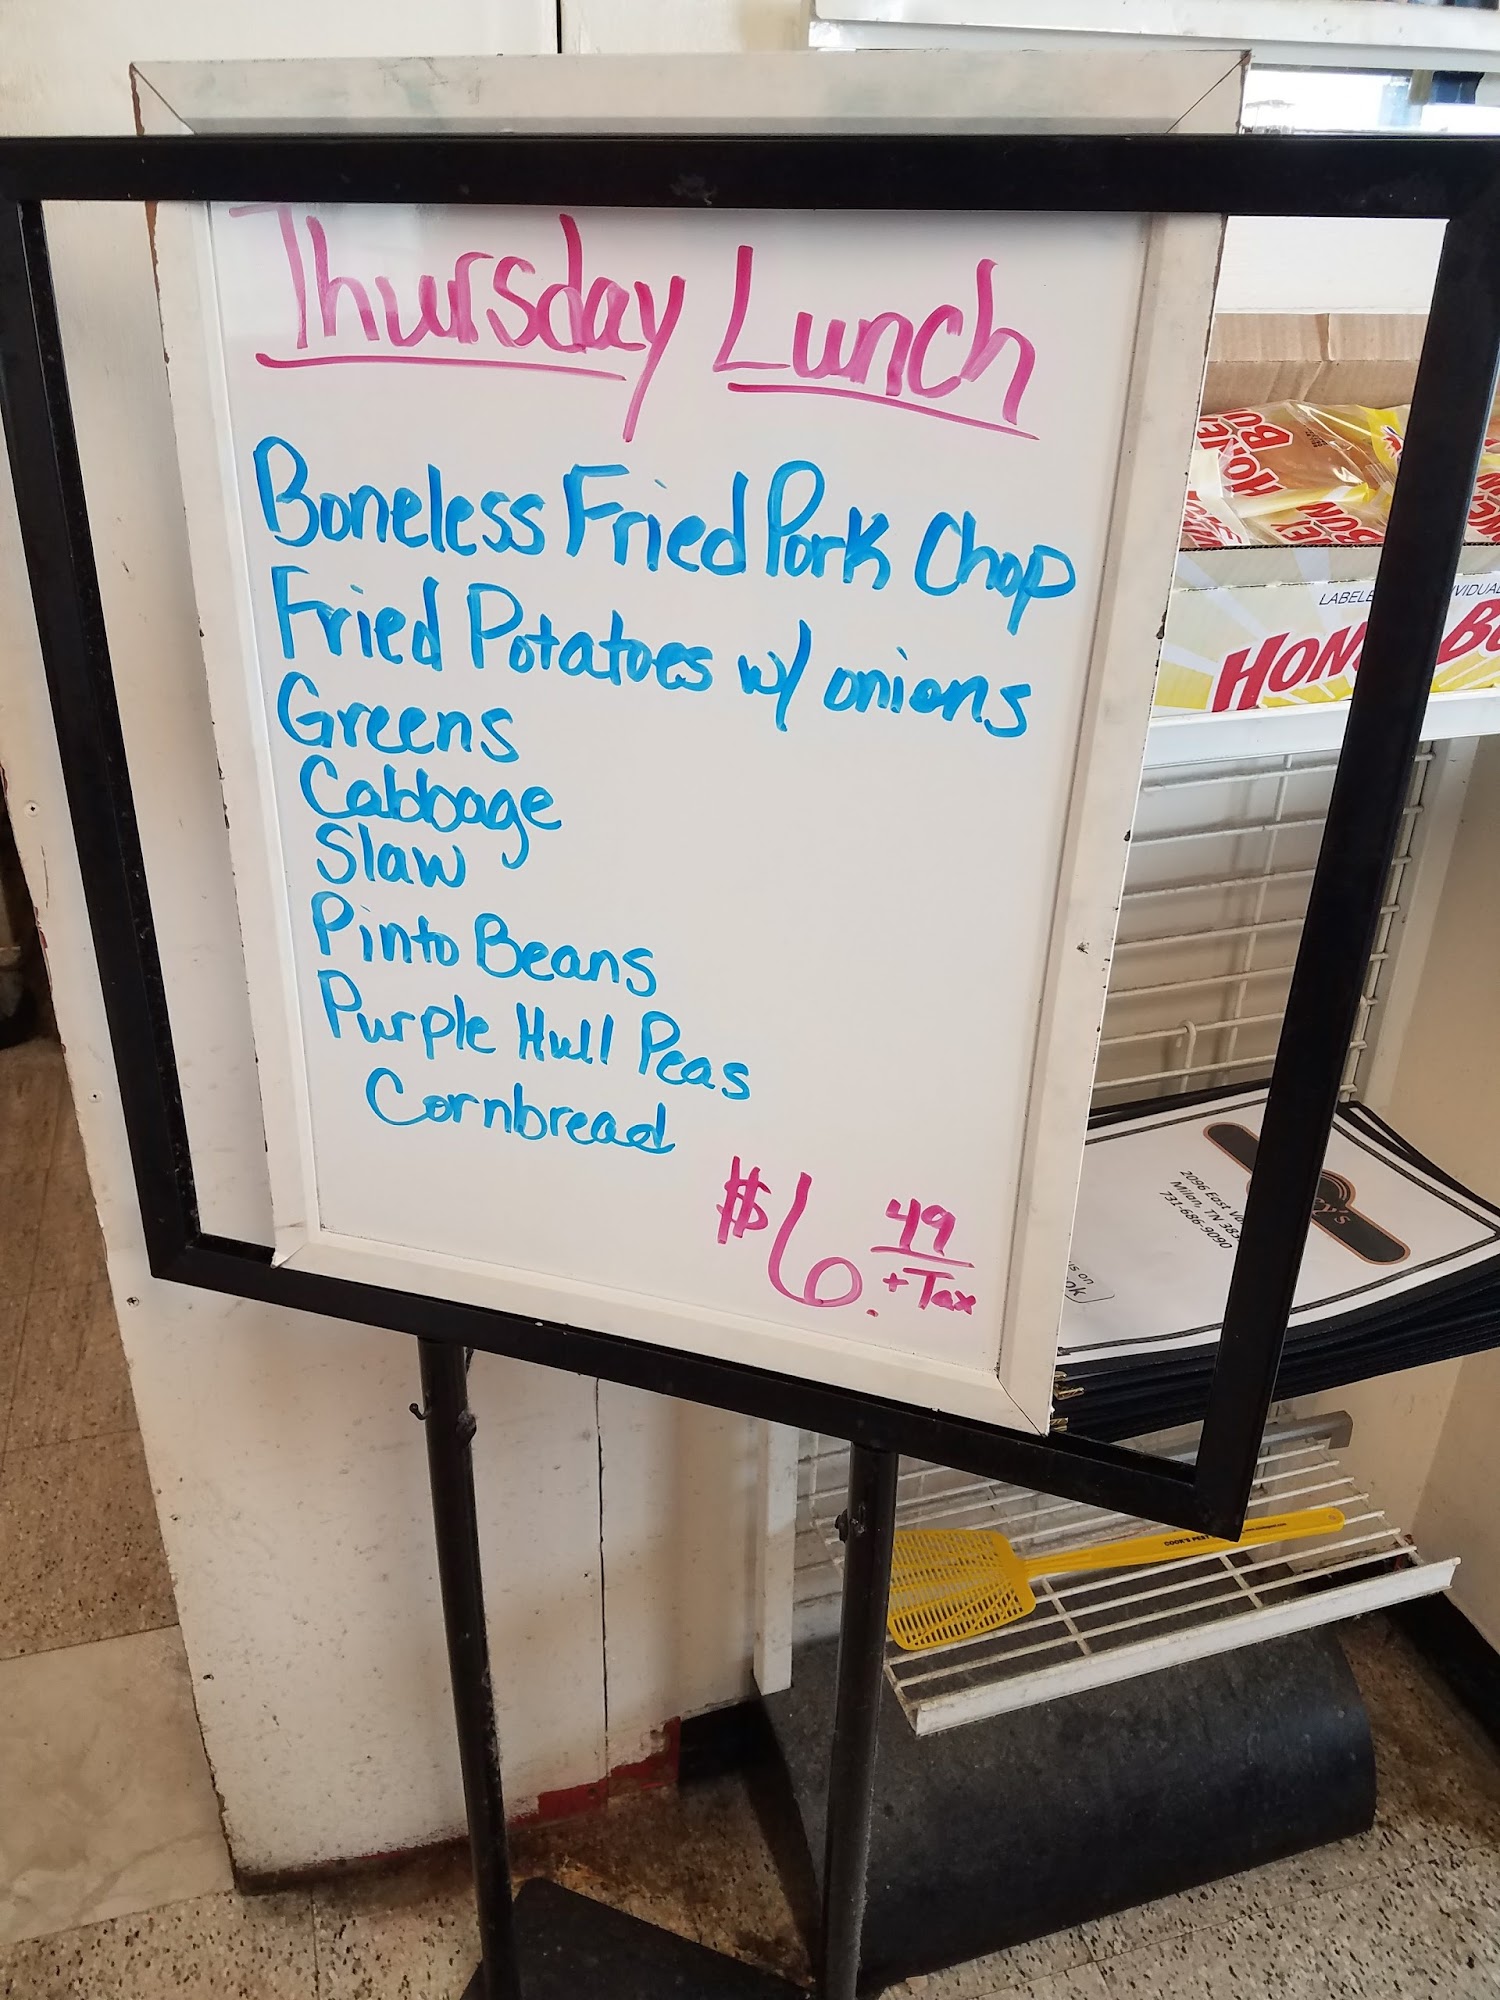 Thursday Lunch
Boneless Fried Pork Chop
Fried Potatoes w/ onions
Greens
Cabbage
Slaw
Pinto Beans
Purple Hull Peas
Cornbread
$6.49
+ Tax
HONEY
BUN
HONEY
BUN
LABELE
HON
2096 East
Milan, TN
731-686-9090
us on
COOK'S PEST